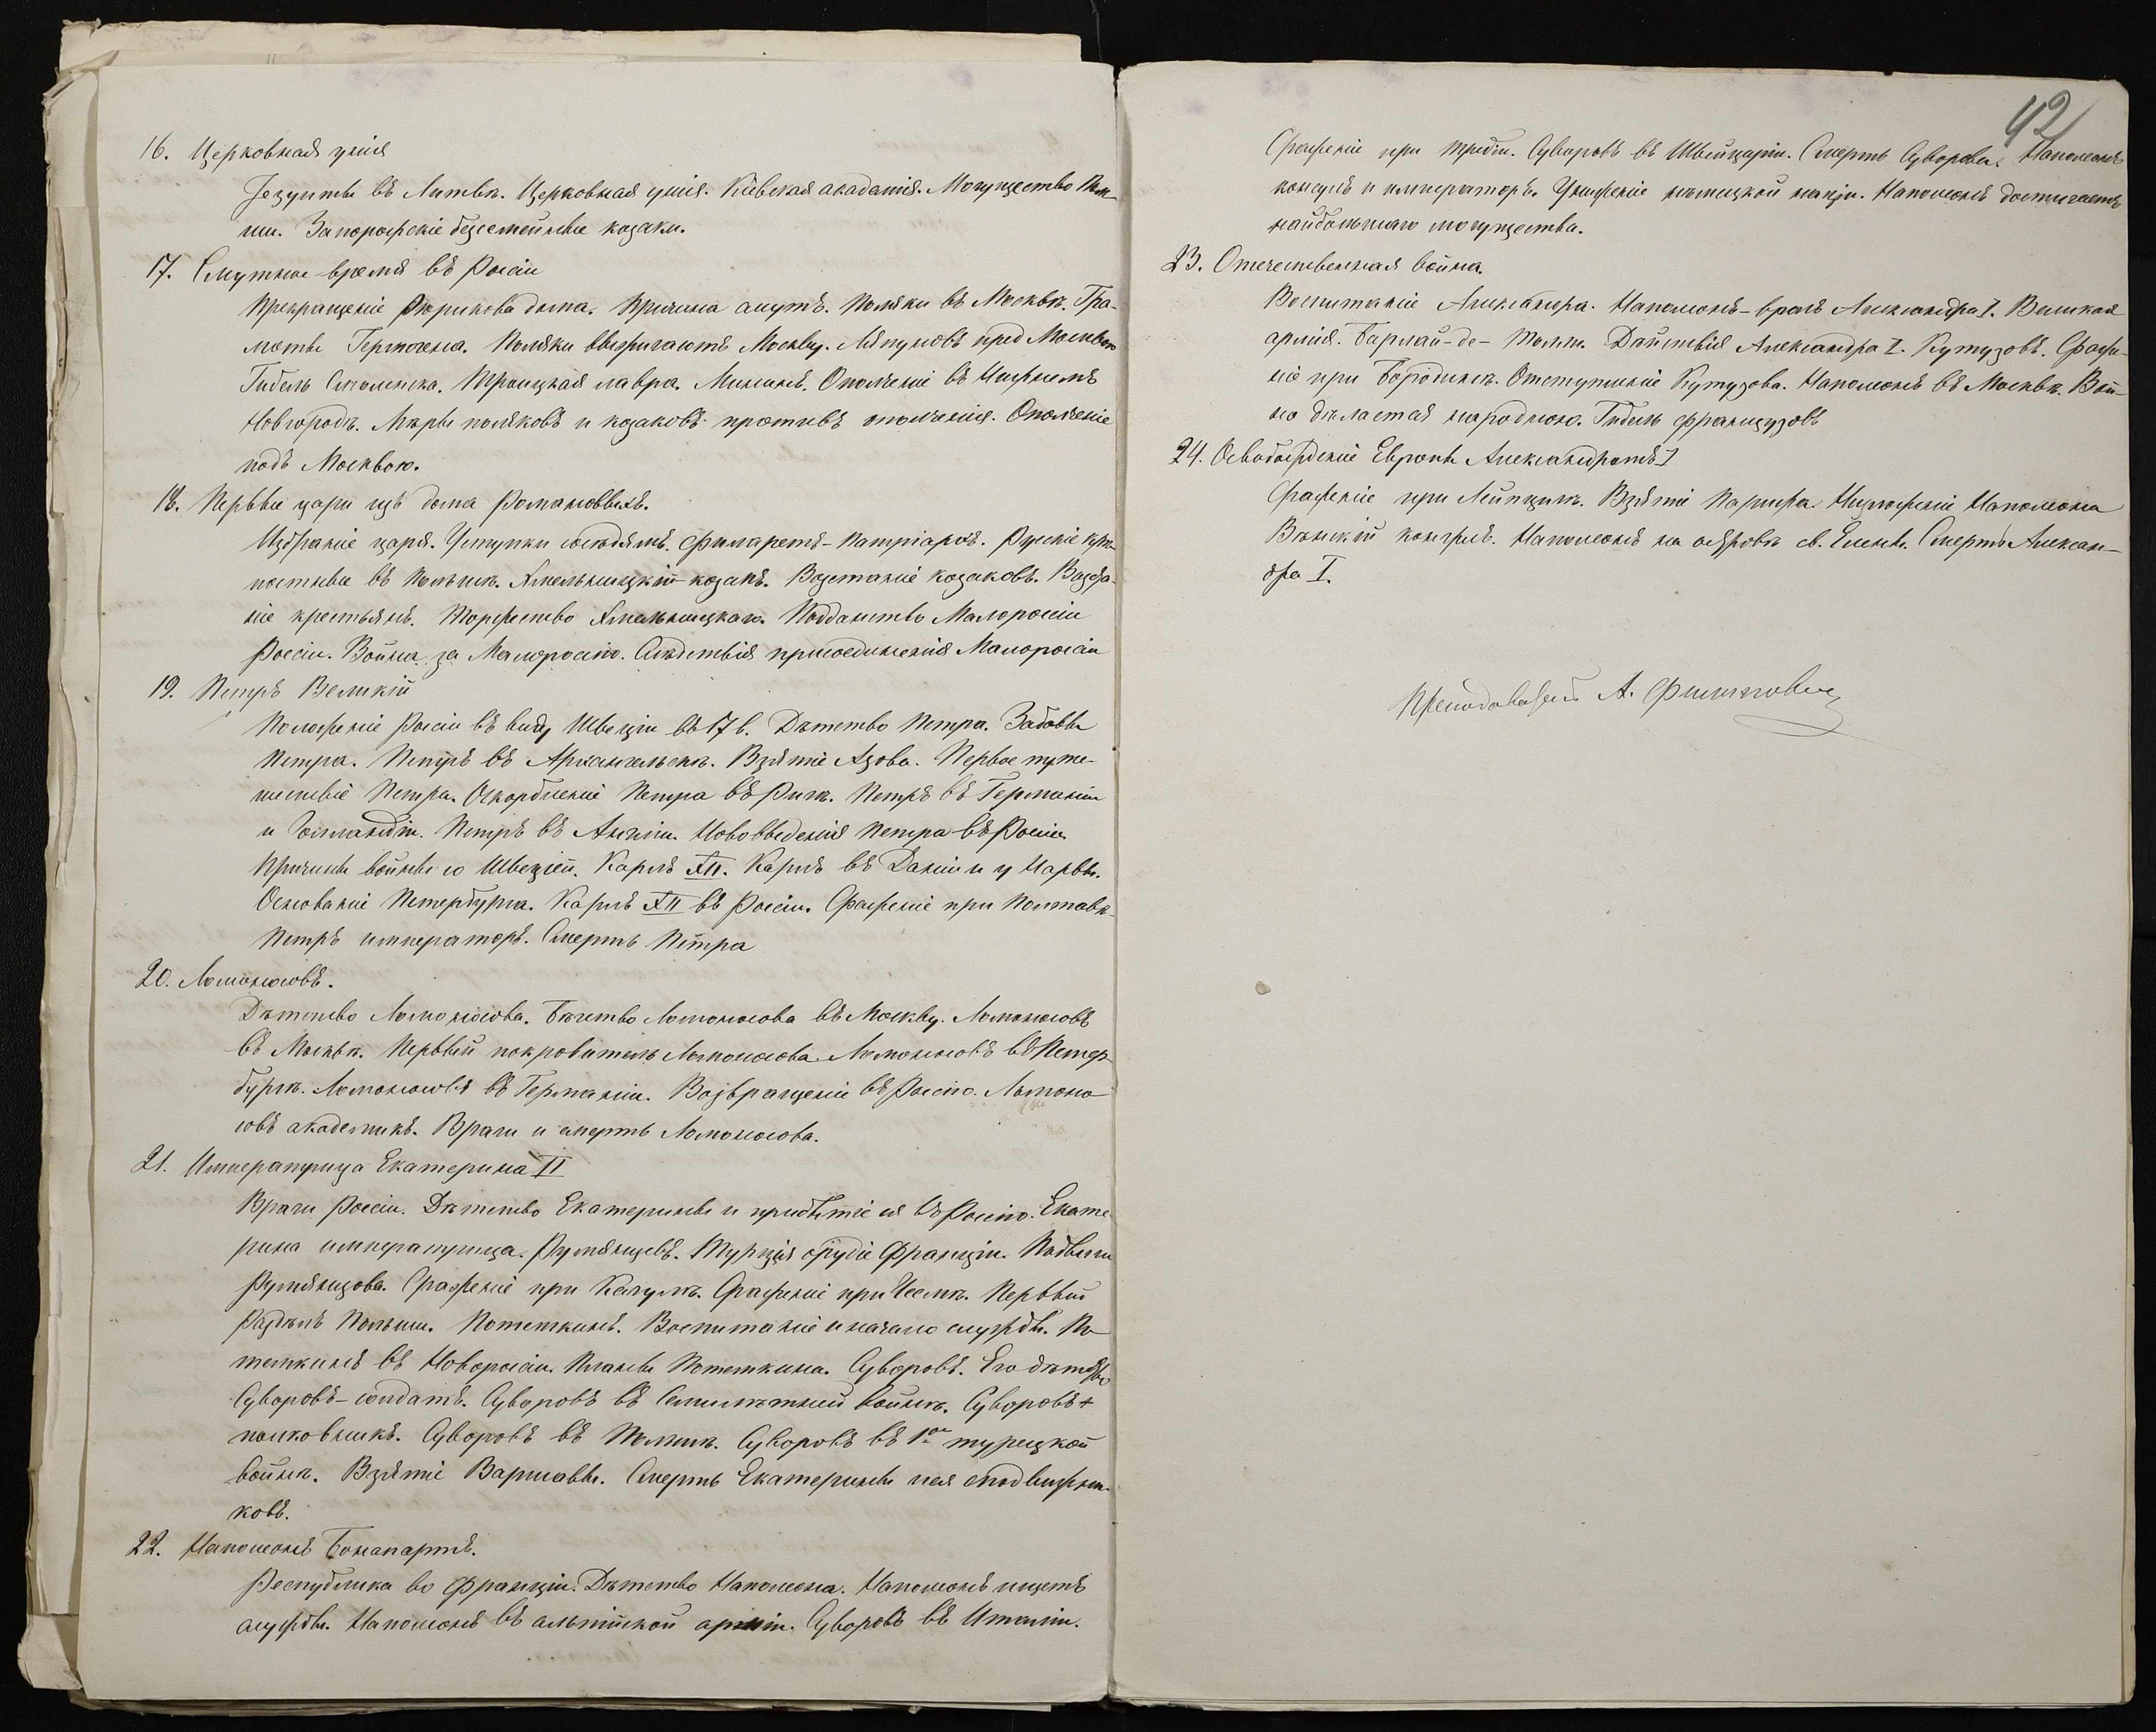 16. Церковная унія
Іезуиты въ Литвѣ. Церковная унія. Кіевская академія. Могущество Поль-
ши. Запорожскіе безсемейные козаки.
17. Смутное время въ Россіи
Прекращеніе Рюрикова дома. Причина смутъ. Поляки въ Москвѣ. Гра-
моты Гермогена. Поляки выжигаютъ Москву. Ляпуновъ пред Москвою
Гибель Смоленска. Троицкая лавра. Мининъ. Ополченіе въ Нижнемъ
Новгородѣ. Мѣры поляковъ и козаковъ противъ ополченія. Ополченіе
подъ Москвою.
18. Первые цари изъ дома Романовыхъ.
Избраніе царя. Уступки сосѣдямъ. Филаретъ-патріархъ. Рускіе крѣ-
постные въ Польшѣ. Хмельницкій-козакъ. Возстаніе козаковъ. Воззва-
ніе крестьянъ. Торжество Хмельницкаго. Подданство Малоросіи
Россіи. Война за Малоросію. Слѣдствія присоединенія Малоросіи
19. Петръ Великій
Положеніе Россіи въ виду Швеціи въ 17 в. Дѣтство Петра. Забавы
Петра. Петръ въ Архангельскѣ. Взятіе Азова. Первое путе-
шествіе Петра. Оскорбленіе Петра въ Ригѣ. Петръ въ Германіи
и Голландіи. Петръ въ Англіи. Нововведенія Петра въ Россіи.
Причины войны со Швеціей. Карлъ XII. Карлъ въ Даніи и у Нарвы.
Основаніе Петербурга. Карлъ XII въ Россіи. Сраженіе при Полтавѣ-
Петръ императоръ. Смерть Петра
20. Ломоносовъ.
Дѣтство Ломоносова. Бѣгство Ломоносова въ Москву. Ломоносовъ
въ Москвѣ. Первый покровитель Ломоносова. Ломоносовъ въ Петер-
бургѣ. Ломоносовъ въ Германіи. Возвращеніе въ Россію. Ломоно-
совъ академикъ. Враги и смерть Ломоносова.
21. Императрица Екатерина II
Враги Россіи. Дѣтство Екатерины и прибытіе ея въ Россію. Екате-
рина императрица. Румянцевъ. Турція орудіе Франціи. Подвиги
Румянцова. Сраженіе при Кагулѣ. Сраженіе при Чесмѣ. Первый
раздѣлъ Польши. Потемкинъ. Воспитаніе и начало службы. По-
темкинъ въ Новоросіи. Планы Потемкина. Суворовъ. Его дѣтство
Суворовъ-солдатъ. Суворовъ въ Семилѣтней войнѣ. Суворовъ +
полковникъ. Суворовъ въ Польшѣ. Суворовъ въ 1ой турецкой
войнѣ. Взятіе Варшавы. Смерть Екатерины и ея сподвижни-
ковъ.
22. Наполеонъ Бонапартъ.
Республика во Франціи. Дѣтство Наполеона. Наполеонъ ищетъ
службы. Наполеонъ въ альпійской арміи. Суворовъ въ Италіи.
42
Сраженіе при Требіи. Суворовъ въ Швейцаріи. Смерть Суворова. Наполеонъ
консулъ и императоръ. Униженіе нѣмецкой націи. Наполеонъ достигаетъ
наибольшаго могущества.
23. Отечественная война.
Воспитаніе Александра. Наполеонъ-врагъ Александра I. Великая
армія. Барклай-де-Толли. Дѣйствія Александра I. Кутузовъ. Сраже-
ніе при Бородинѣ. Отступленіе Кутузова. Наполеонъ въ Москвѣ. Вой-
на дѣлается народною. Гибель французовъ
24. Освобожденіе Европы Александромъ I
Сраженіе при Лейпцигѣ. Взятіе Парижа. Низложеніе Наполеона
Вѣнскій конгресъ. Наполеонъ на островѣ св. Елены. Смерть Алексан-
дра I.
Преподаватель А.